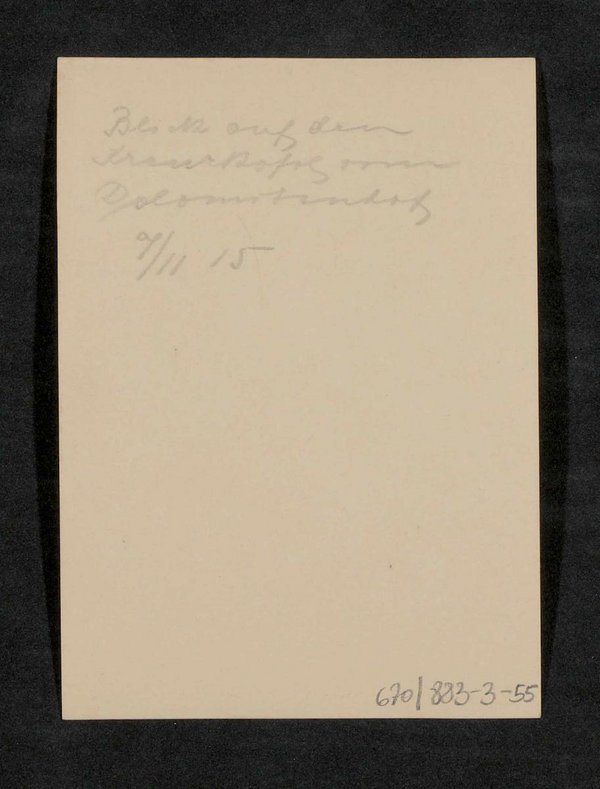 Blick auf den
Kreuzkofel vom
Dolomitenhof
9/11 15
670/883-3-55